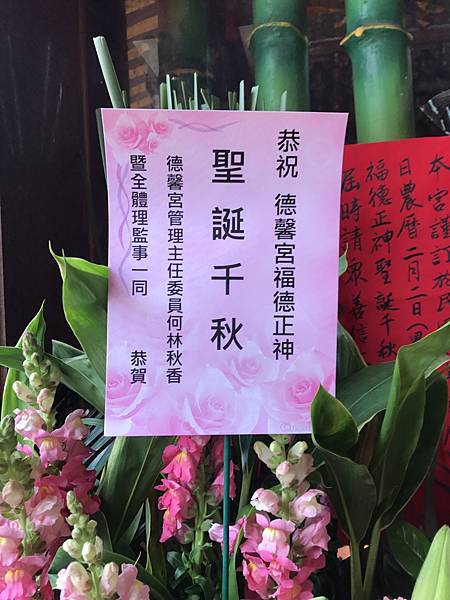 恭祝 德馨宮福德正神
聖誕千秋
德馨宮管理主任委員何林秋香
暨全體理監事一同 恭賀
本宮謹訂於民
日農曆二月二日(星
福德正神聖誕千秋
屆時請眾善信